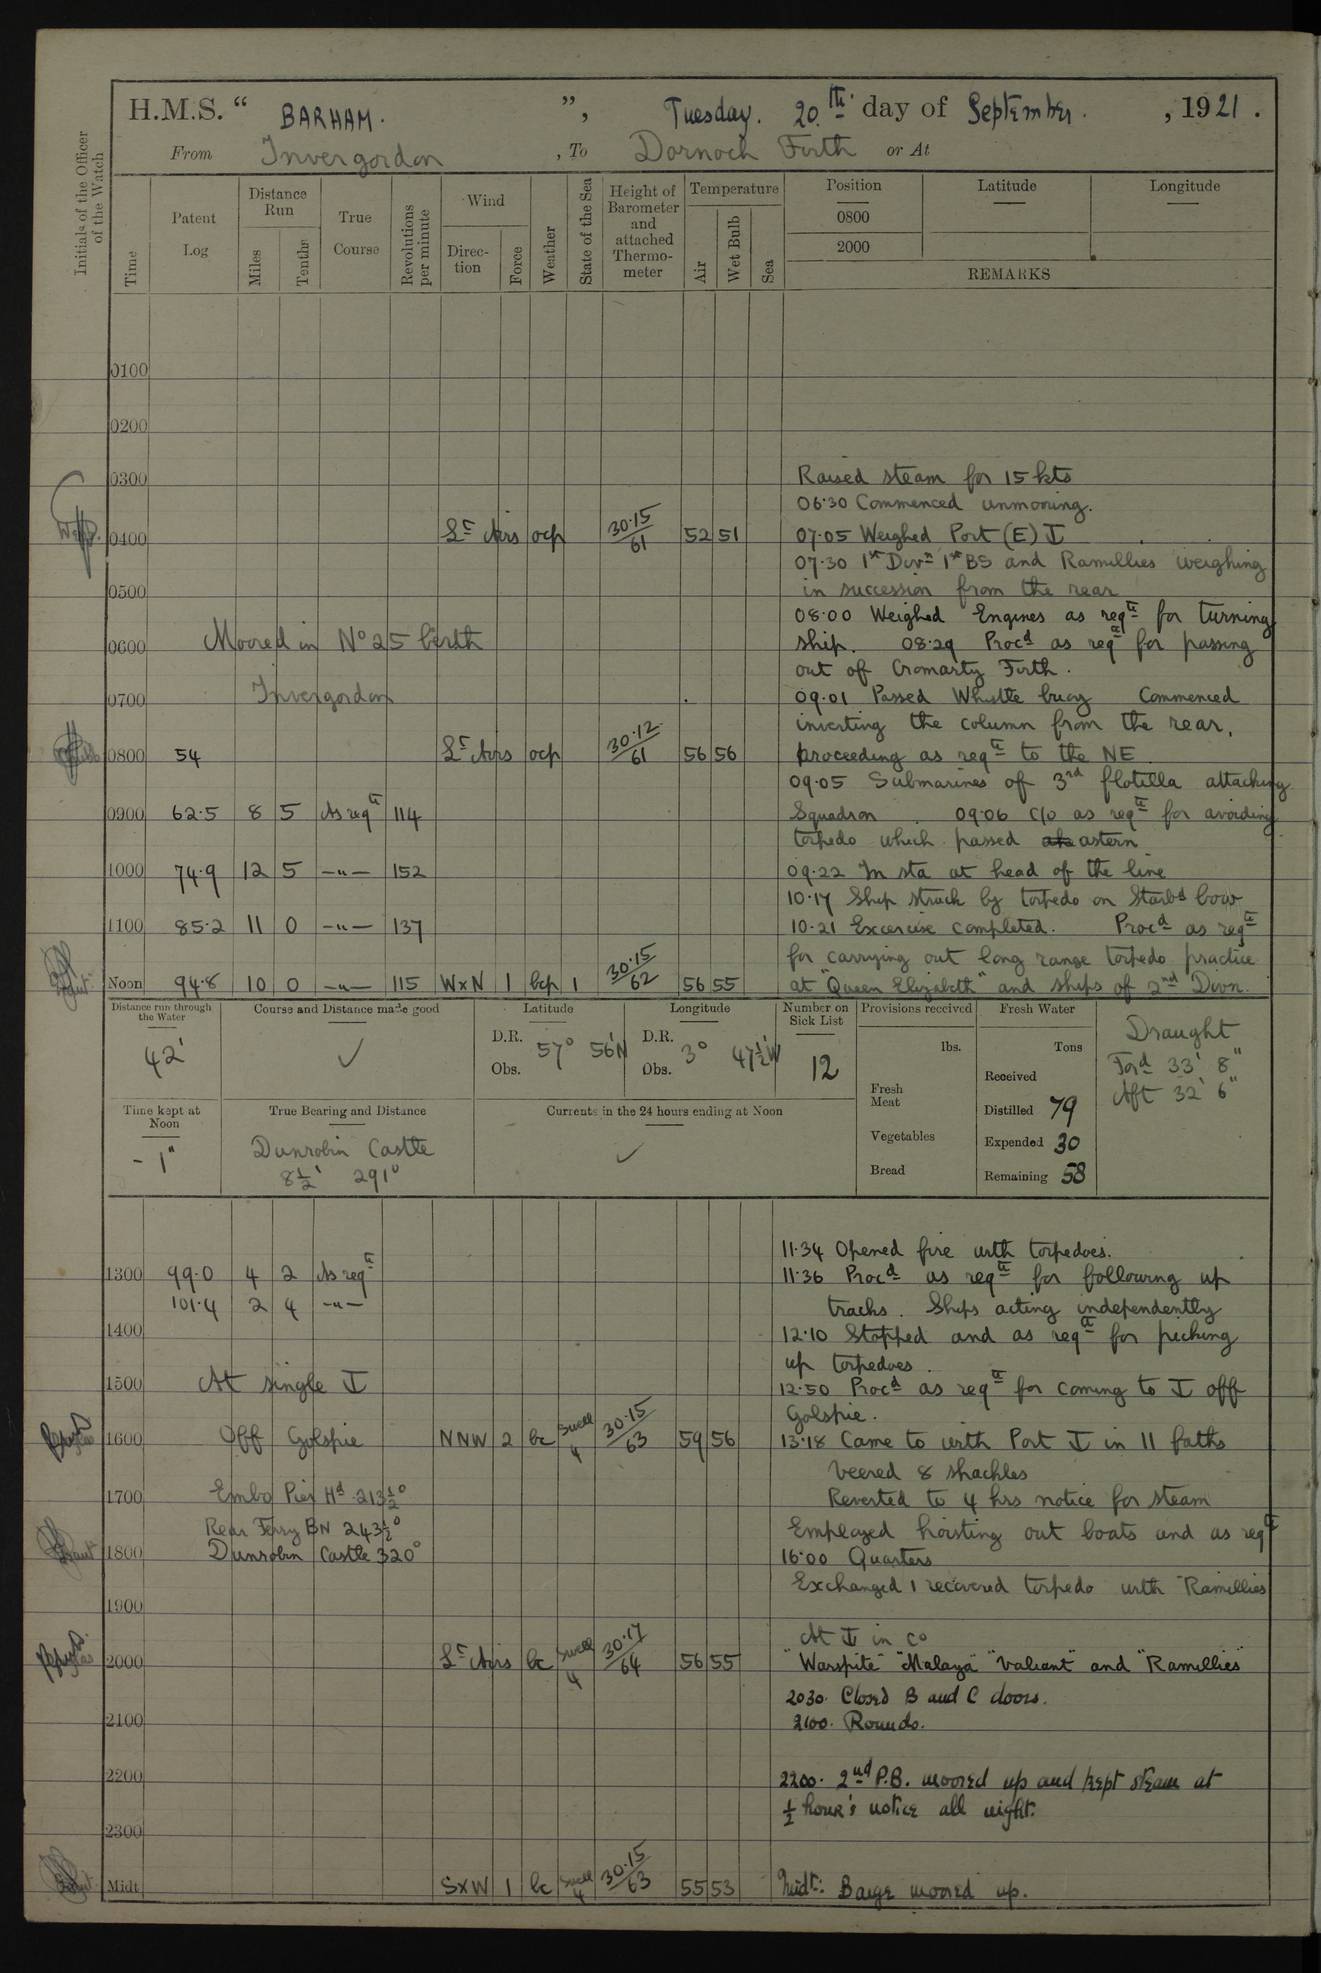 H.M.S. “ BARHAM. ”, Tuesday. 20th day of September. , 1921.
From Invergordon , To Dornoch Firth or At
Initials of the Officer of the Watch
Time
Patent Log
Distance Run
Miles
Tenths
True Course
Revolutions per minute
Wind
Direc-tion
Force
Weather
State of the Sea
Height of Barometer and attached Thermo-meter
Temperature
Air
Wet Bulb
Sea
Position
0800
2000
Latitude
Longitude
REMARKS
0100
0200
0300
0400 Lt Airs ocp 30·15/61 52 51
0500
0600 Moored in No 25 berth
0700 Invergordon
0800 54 Lt Airs ocp 30·12/61 56 56
0900 62·5 8 5 As reqte 114
1000 74·9 12 5 —"— 152
1100 85·2 11 0 —"— 137
Noon 94·8 10 0 —"— 115 WxN 1 bcp 1 30·15/62 56 55
Raised steam for 15 kts
06·30 Commenced unmooring.
07·05 Weighed Port (E) ⚓
07·30 1st Divn 1st BS and Ramillies weighing
in succession from the rear
08·00 Weighed Engines as reqte for turning
ship. 08·29 Procd as reqte for passing
out of Cromarty Firth.
09·01 Passed Whistle buoy Commenced
inverting the column from the rear,
proceeding as reqte to the NE.
09·05 Submarines of 3rd flotilla attacking
Squadron. 09·06 C/o as reqte for avoiding
torpedo which passed astern
09·22 In sta at head of the line
10·17 Ship struck by torpedo on Starbd bow
10·21 Excercise completed. Procd as reqte
for carrying out long range torpedo practice
at "Queen Elizabeth" and ships of 2nd Divn.
Distance run through the Water
42'
Course and Distance made good
✓
Latitude
D.R.
Obs.
57° 56'N
Longitude
D.R.
Obs.
3° 47½'W
Number on Sick List
12
Provisions received
lbs.
Fresh Meat
Vegetables
Bread
Fresh Water
Tons
Received
Distilled 79
Expended 30
Remaining 58
Draught
Ford 33' 8"
Aft 32' 6"
Time kept at Noon
-1"
True Bearing and Distance
Dunrobin Castle
8½' 291°
Currents in the 24 hours ending at Noon
✓
1300 99·0 4 2 As reqte
101·4 2 4 —"—
1400
1500 At single ⚓
1600 Off Golspie NNW 2 bc Swell 4 30·15/63 59 56
1700 Embo Pier Hd 213½°
Rear Ferry BN 243½°
1800 Dunrobin Castle 320°
1900
2000 Lt Airs bc Swell 4 30·17/64 56 55
2100
2200
2300
Midt SxW 1 bc Swell 4 30·15/63 55 53
11·34 Opened fire with torpedoes.
11·36 Procd as reqte for following up
tracks. Ships acting independently
12·10 Stopped and as reqte for picking
up torpedoes.
12·50 Procd as reqte for coming to ⚓ off
Golspie.
13·18 Came to with Port ⚓ in 11 faths
veered 8 shackles
Reverted to 4 hrs notice for steam
Employed hoisting out boats and as reqte
16·00 Quarters
Exchanged 1 recovered torpedo with "Ramillies
At ⚓ in Co
"Warspite" "Malaya" "Valiant" and "Ramillies"
2030. Closed B and C doors.
2100. Rounds.
2200. 2nd P.B. moored up and kept steam at
½ hour's notice all night.
Midt: Barge moored up.